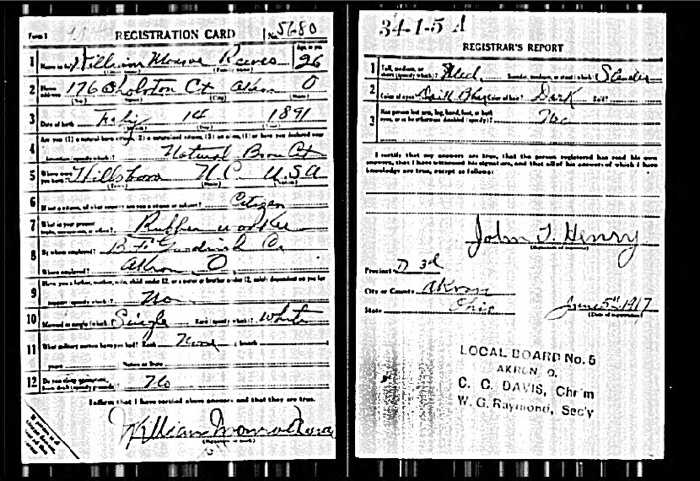 Form 1 REGISTRATION CARD No. 5680
1 Name in full William Monroe Reeves Age, in yrs. 26
2 Home address 176 Ct Akron O
3 Date of birth July 14 1891
4 Are you (1) a natural-born citizen, (2) a naturalized citizen, (3) an alien, (4) or have you declared your
intention (specify which)? Natural Born Cit
5 Where were you born? Hillsboro N.C. U.S.A
6 If not a citizen, of what country are you a citizen or subject? Citizen
7 What is your present trade, occupation, or office? Rubber worker
8 By whom employed? B F Goodrich Co
Where employed? Akron O
9 Have you a father, mother, wife, child under 12, or a sister or brother under 12, solely dependent on you for
support (specify which)? No
10 Married or single (which)? Single Race (specify which)? White
11 What military service have you had? Rank None ; branch
years ; Nation or State
12 Do you claim exemption from draft (specify grounds)? No
I affirm that I have verified above answers and that they are true.
William Monroe Reeves
34-1-5 A
REGISTRAR'S REPORT
1 Tall, medium, or short (specify which)? Med. Slender, medium, or stout (which)? Slender
2 Color of eyes? Color of hair? Dark Bald?
3 Has person lost arm, leg, hand, foot, or both eyes, or is he otherwise disabled (specify)? No
I certify that my answers are true, that the person registered has read his own
answers, that I have witnessed his signature, and that all of his answers of which I have
knowledge are true, except as follows:
John T. Henry
(Signature of registrar)
Precinct 3d
City or County Akron
State Ohio June 5th 1917
(Date of registration)
LOCAL BOARD No. 5
AKRON, O.
C. C. DAVIS, Chr'm
W. G. Raymond, Sec'y